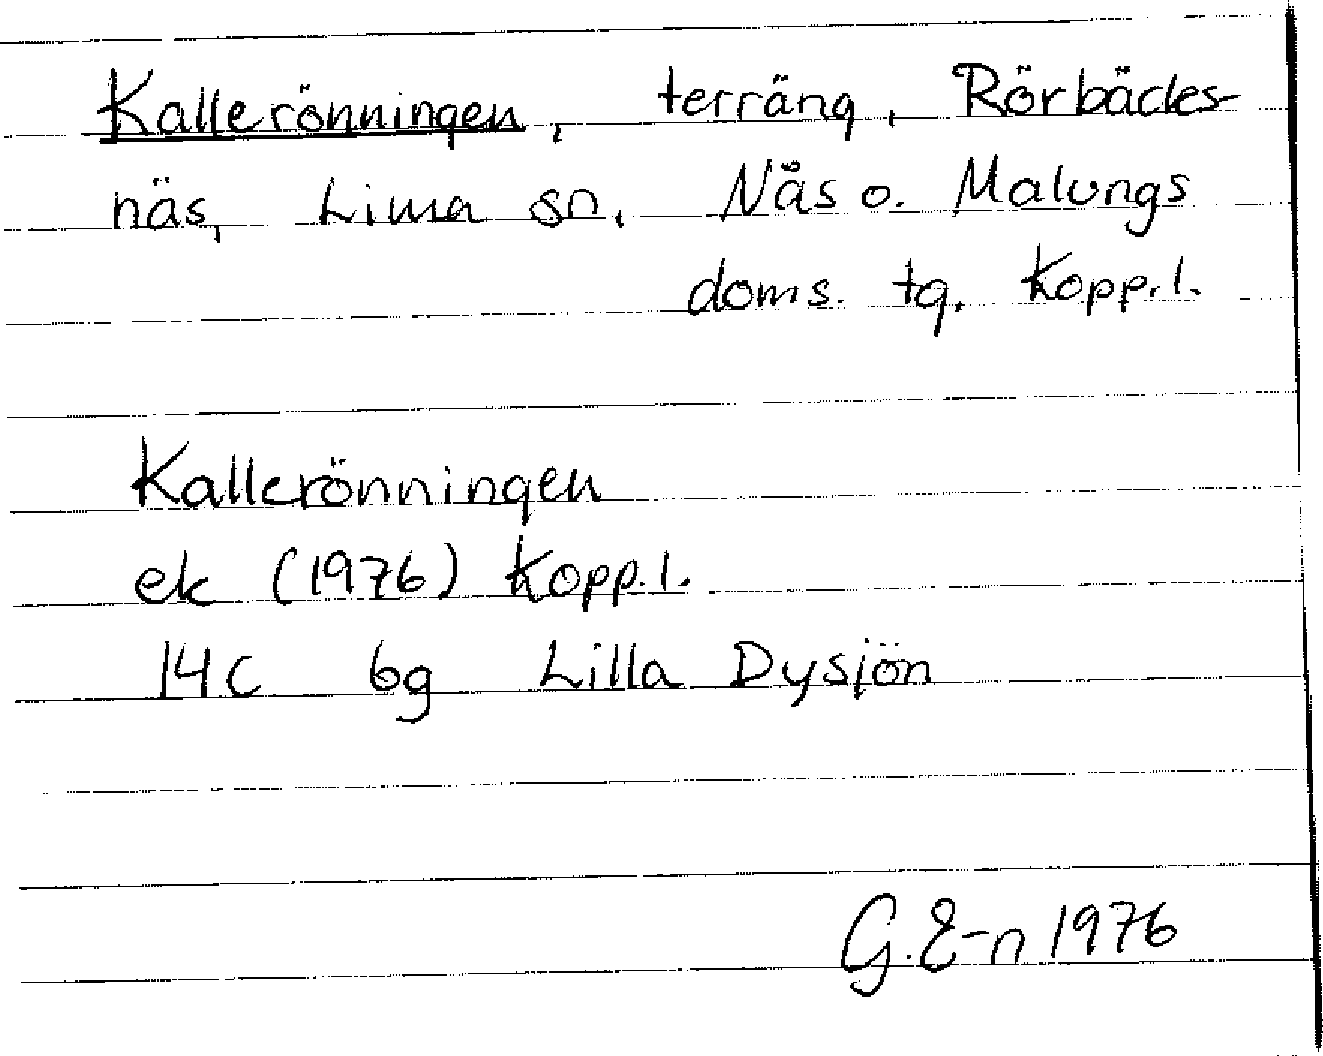 Kallerönningen, terräng, Rörbäcks-
näs, Lima sn. Nås o. Malungs
doms. tg. Kopp.l.
Kallerönningen
ek (1976) Kopp.l.
14C 6g Lilla Dysjön
G. E-n 1976